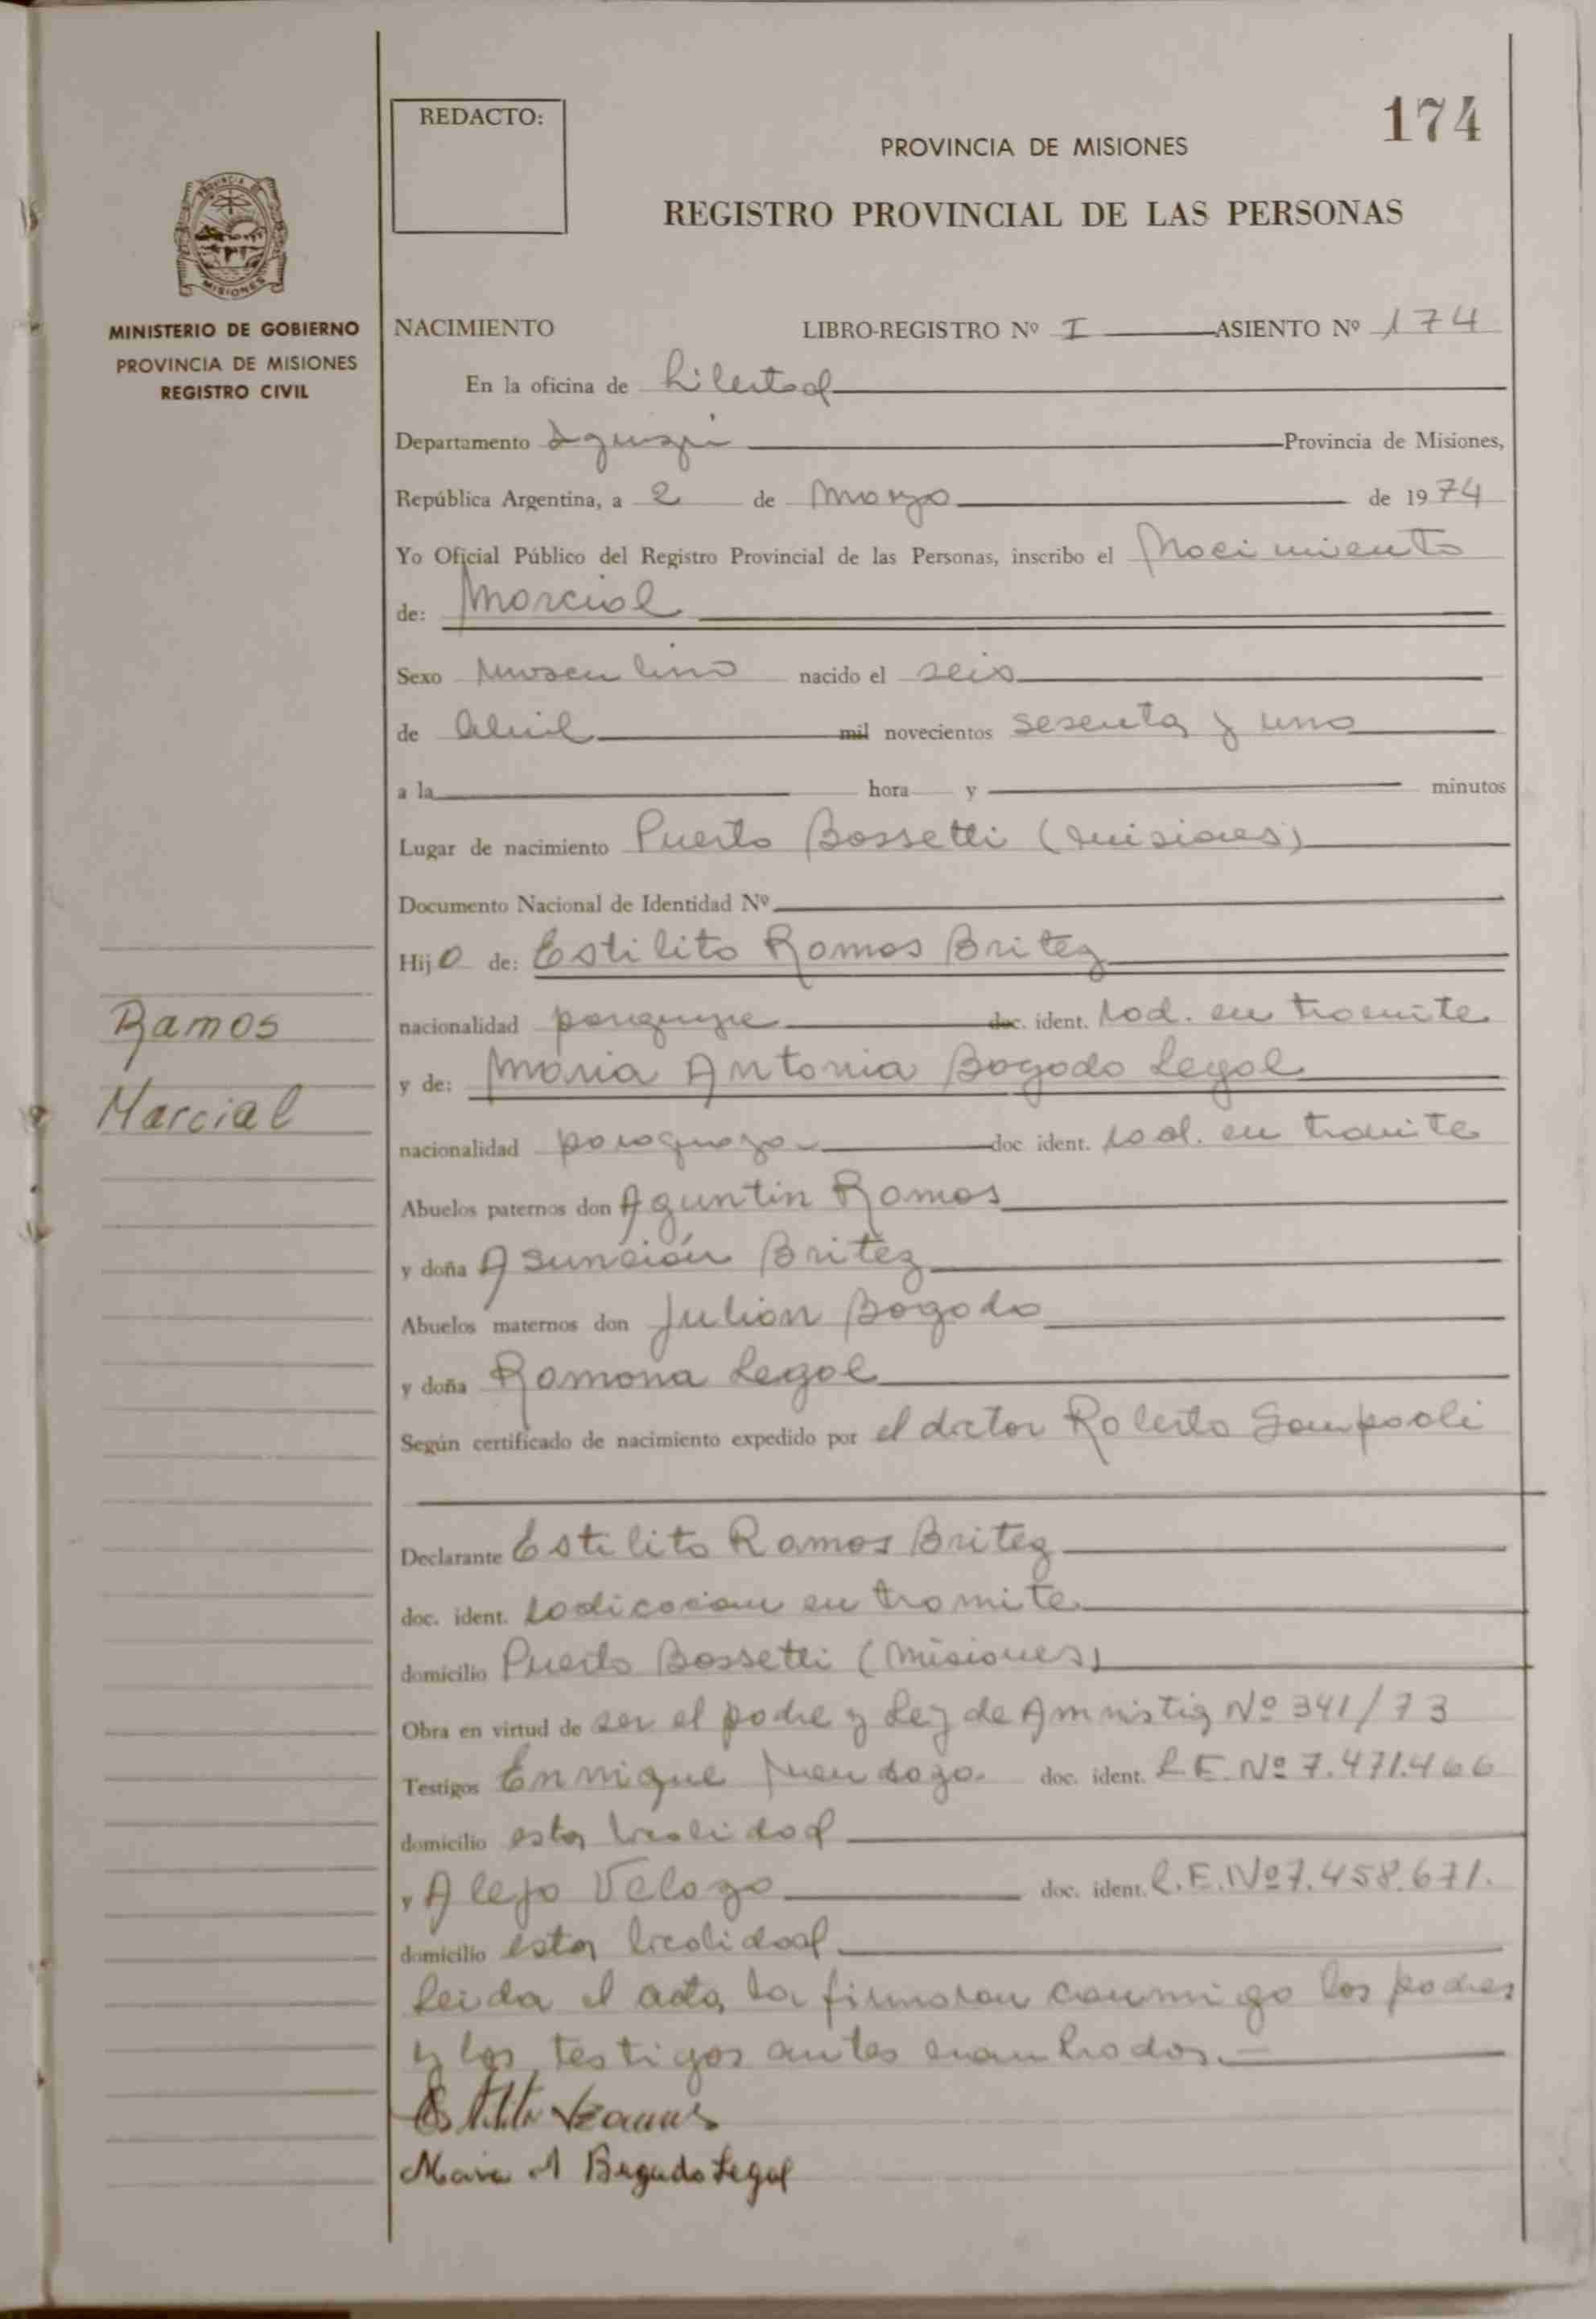 174
REDACTO:
PROVINCIA DE MISIONES
REGISTRO PROVINCIAL DE LAS PERSONAS
PROVINCIA DE
MISIONES
MINISTERIO DE GOBIERNO
PROVINCIA DE MISIONES
REGISTRO CIVIL
NACIMIENTO LIBRO-REGISTRO Nº I ASIENTO Nº 174
En la oficina de Libertad
Departamento Iguazú Provincia de Misiones,
República Argentina, a 2 de Marzo de 1974
Yo Oficial Público del Registro Provincial de las Personas, inscribo el Nacimiento
de: Marcial
Sexo Masculino nacido el seis
de abril mil novecientos sesenta y uno
a la hora y minutos
Lugar de nacimiento Puerto Bossetti (Misiones)
Documento Nacional de Identidad Nº
Hijo de: Estilito Ramos Britez
nacionalidad doc. ident. cod. en tramite
y de: Maria Antonia Bogado Legal
nacionalidad paraguaya doc ident. cod. en tramite
Abuelos paternos don Aguntin Ramos
y doña Asunción Britez
Abuelos maternos don Julian Bogado
y doña Ramona Legal
Según certificado de nacimiento expedido por el doctor Roberto Sampaoli
Ramos
Marcial
Declarante Estilito Ramos Britez
doc. ident. codicacion en tramite
domicilio Puerto Bossetti (Misiones)
Obra en virtud de ser el padre y Ley de Amnistia Nº 341/73
Testigos Enrrique Mendozo doc. ident. L.E. Nº 7.471.466
domicilio esta localidad
y Alejo Velozo doc. ident. L.E. Nº 7.458.671.
domicilio esta localidad
Leida el acta, la firmaran conmigo los padres
y los testigos antes nombrados.
Estilito Ramos
Maria A Bogado Legal